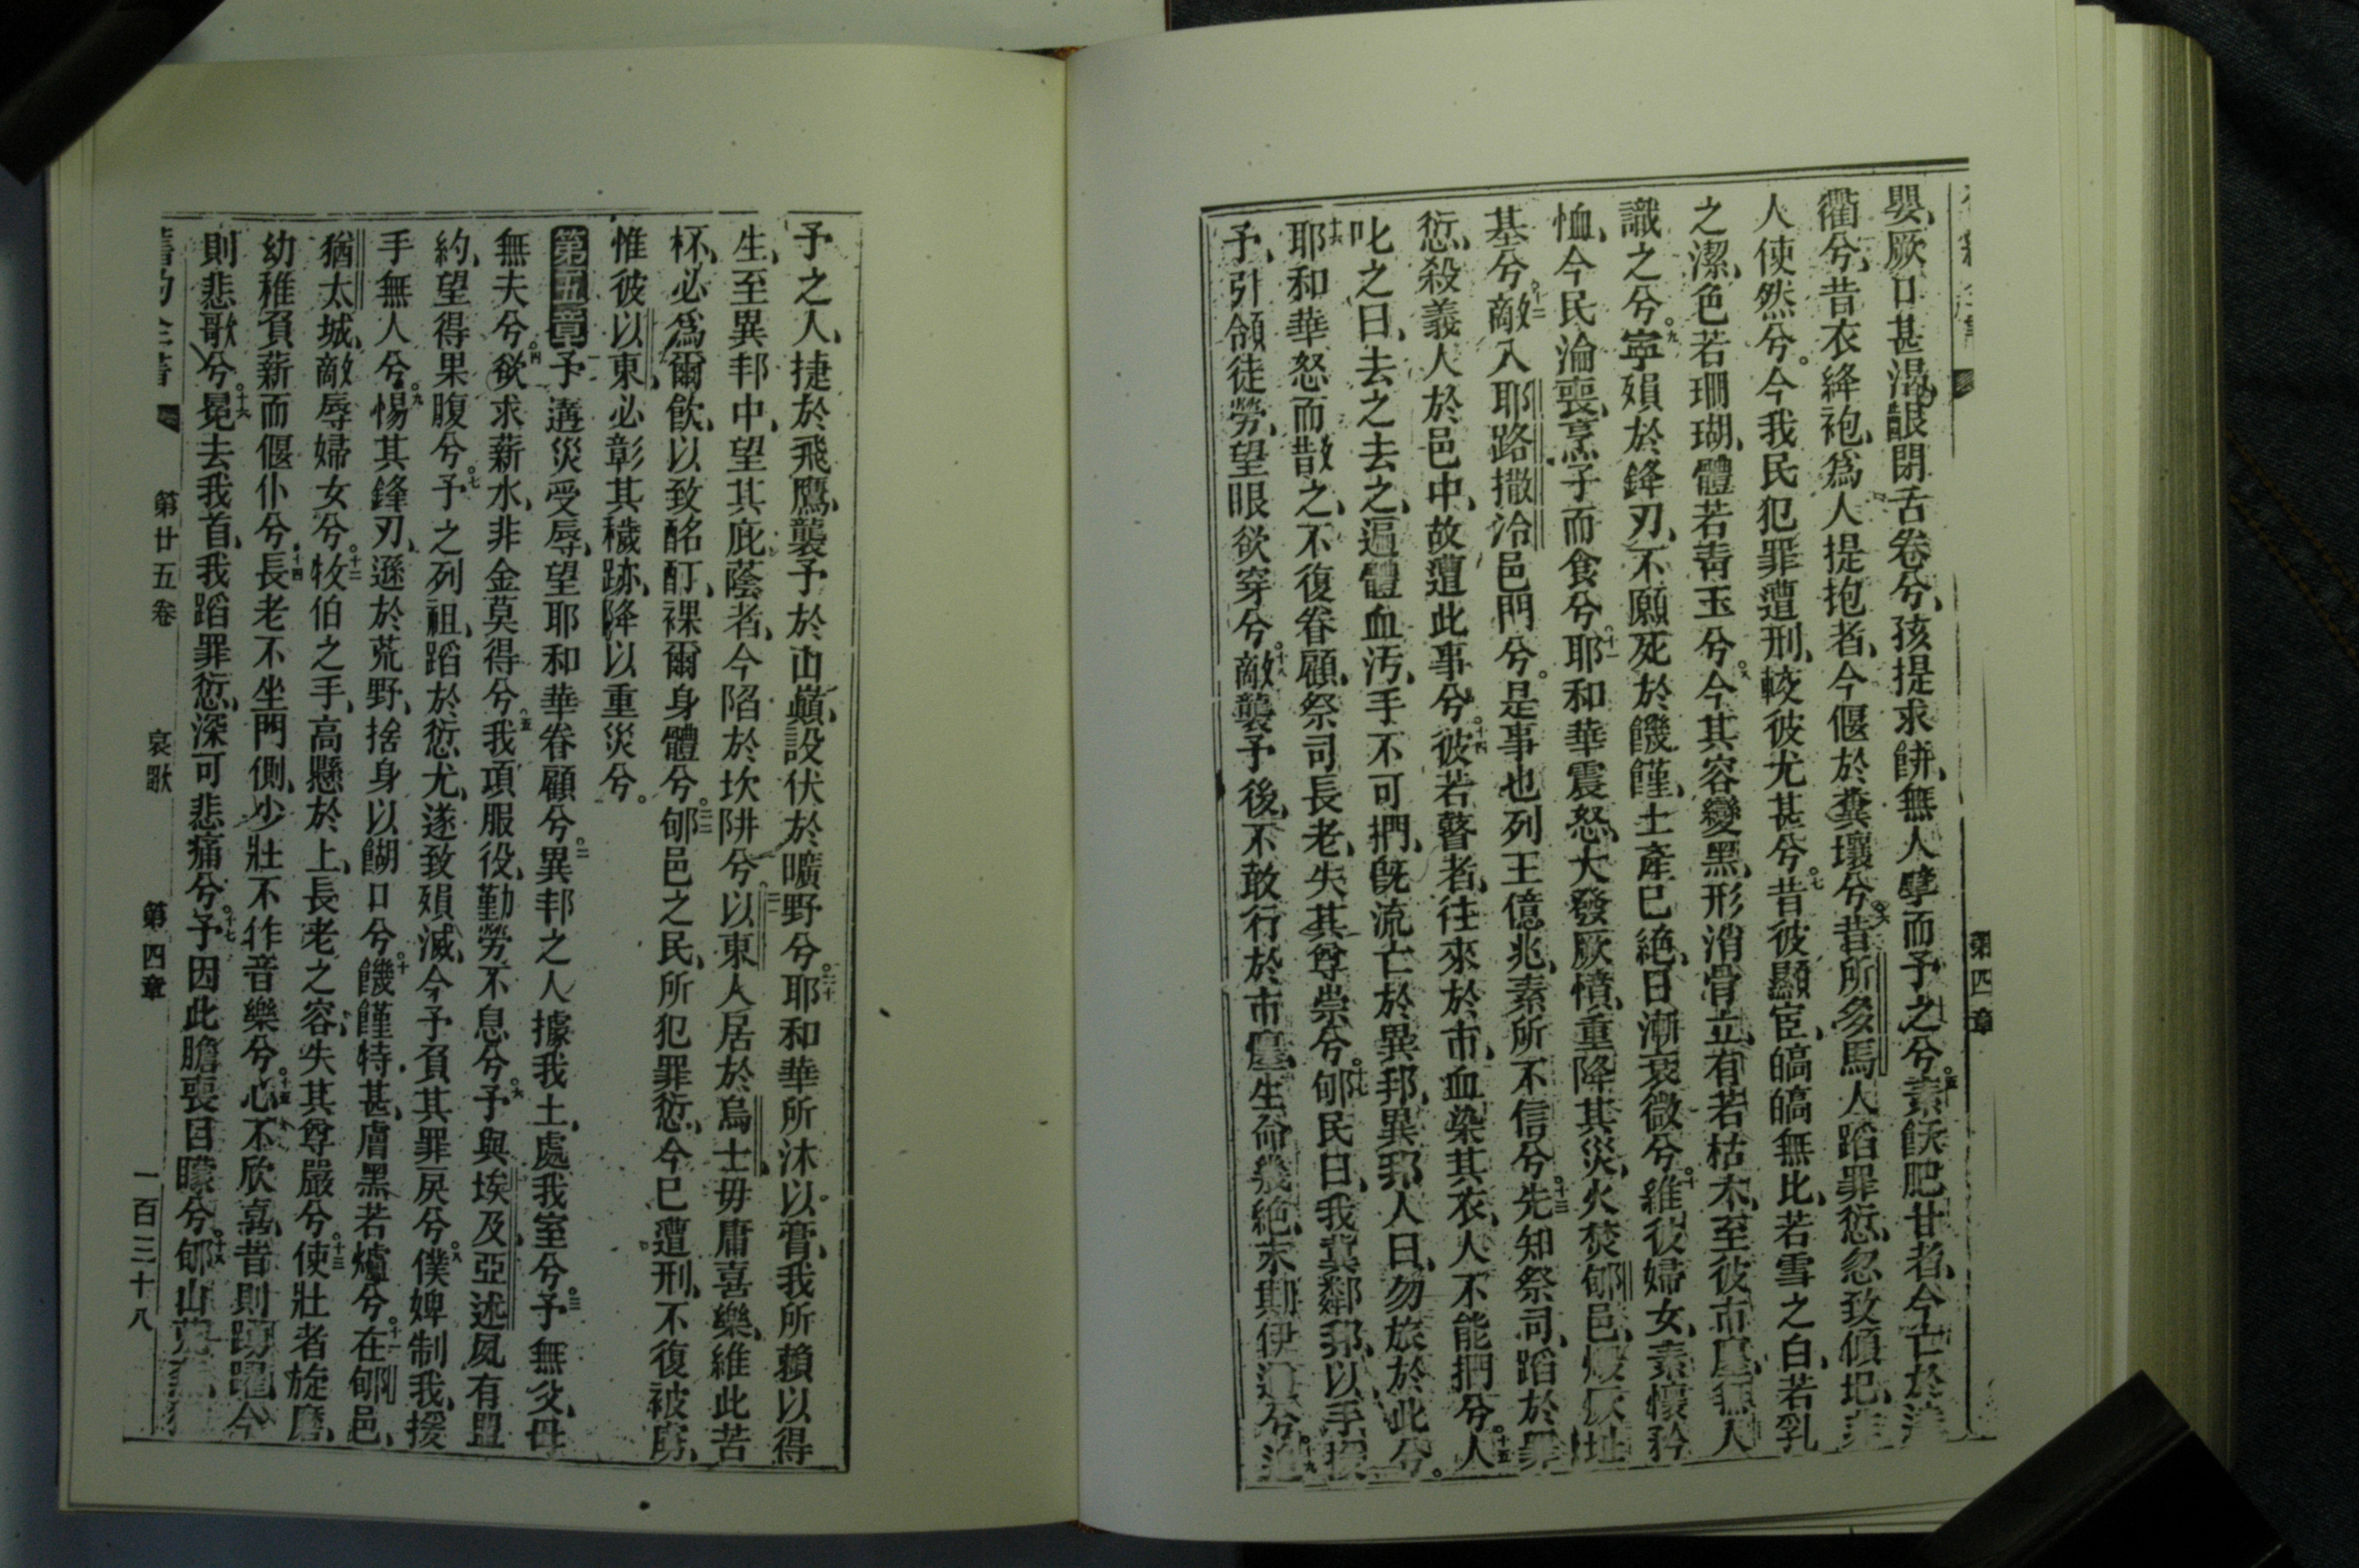 第四章
嬰、厥口甚渴、齦閉舌卷兮、孩提求餅、無人擘而予之兮。五素飫肥甘者、今亡於
衢兮、昔衣絳袍、爲人提抱者、今偃於糞壤兮。六昔所多馬人蹈罪愆、忽致傾圮、
人使然兮。今我民犯罪遭刑、較彼尤甚兮。七昔彼顯宦、皜皜無比、若雪之白、若乳
之潔、色若珊瑚、體若靑玉兮。八今其容變黑、形消骨立、有若枯木、至彼市廛、無人
識之兮。九寧殞於鋒刃、不願死於饑饉、土產已絶、日漸衰微兮。十維彼婦女、素懷矜
恤、今民淪喪、烹子而食兮。十一耶和華震怒、大發厥憤、重降其災、火焚郇邑、燬厥址
基兮。十二敵入耶路撒冷邑門兮。是事也列王億兆、素所不信兮。十三先知祭司、蹈於罪
愆、殺義人於邑中、故遭此事兮。十四彼若瞽者、往來於市、血染其衣、人不能捫兮。十五人
叱之曰、去之去之、遍體血汚、手不可捫、旣流亡於異邦、異邦人曰、勿旅於此兮。
十六耶和華怒而散之、不復眷顧、祭司長老、失其尊崇兮。十七郇民曰、我冀鄰邦、以手援
予、引領徒勞、望眼欲穿兮。十八敵襲予後、不敢行於市廛、生命幾絶、末期伊邇兮。十九追
予之人、捷於飛鷹、襲予於山巔、設伏於曠野兮。二十耶和華所沐以膏、我所賴以得
生、至異邦中、望其庇蔭者、今陷於坎阱兮。二一以東人居於烏士、毋庸喜樂、維此苦
杯、必爲爾飮、以致酩酊、裸爾身體兮。二二郇邑之民、所犯罪愆、今已遭刑、不復被虜、
惟彼以東、必彰其穢跡、降以重災兮。
第五章一予遘災受辱、望耶和華眷顧兮。二異邦之人、據我土、處我室兮。三予無父、母
無夫兮。四欲求薪水、非金莫得兮。五我項服役、勤勞不息兮。六予與埃及亞述夙有盟
約、望得果腹兮。七予之列祖、蹈於愆尤、遂致殞滅、今予負其罪戾兮。八僕婢制我、援
手無人兮。九惕其鋒刃、遜於荒野、捨身以餬口兮。十饑饉特甚、膚黑若爐兮。十一在郇邑、
猶太城、敵辱婦女兮。十二牧伯之手、高懸於上、長老之容、失其尊嚴兮。十三使壯者旋磨、
幼稚負薪而偃仆兮。十四長老不坐門側、少壯不作音樂兮。十五心不欣喜、昔則踴躍、今
則悲歌兮。十六冕去我首、我蹈罪愆、深可悲痛兮。十七予因此膽喪目矇兮。十八郇山荒蕪、狐
舊約全書 第廿五卷 哀歌 第四章 一百三十八